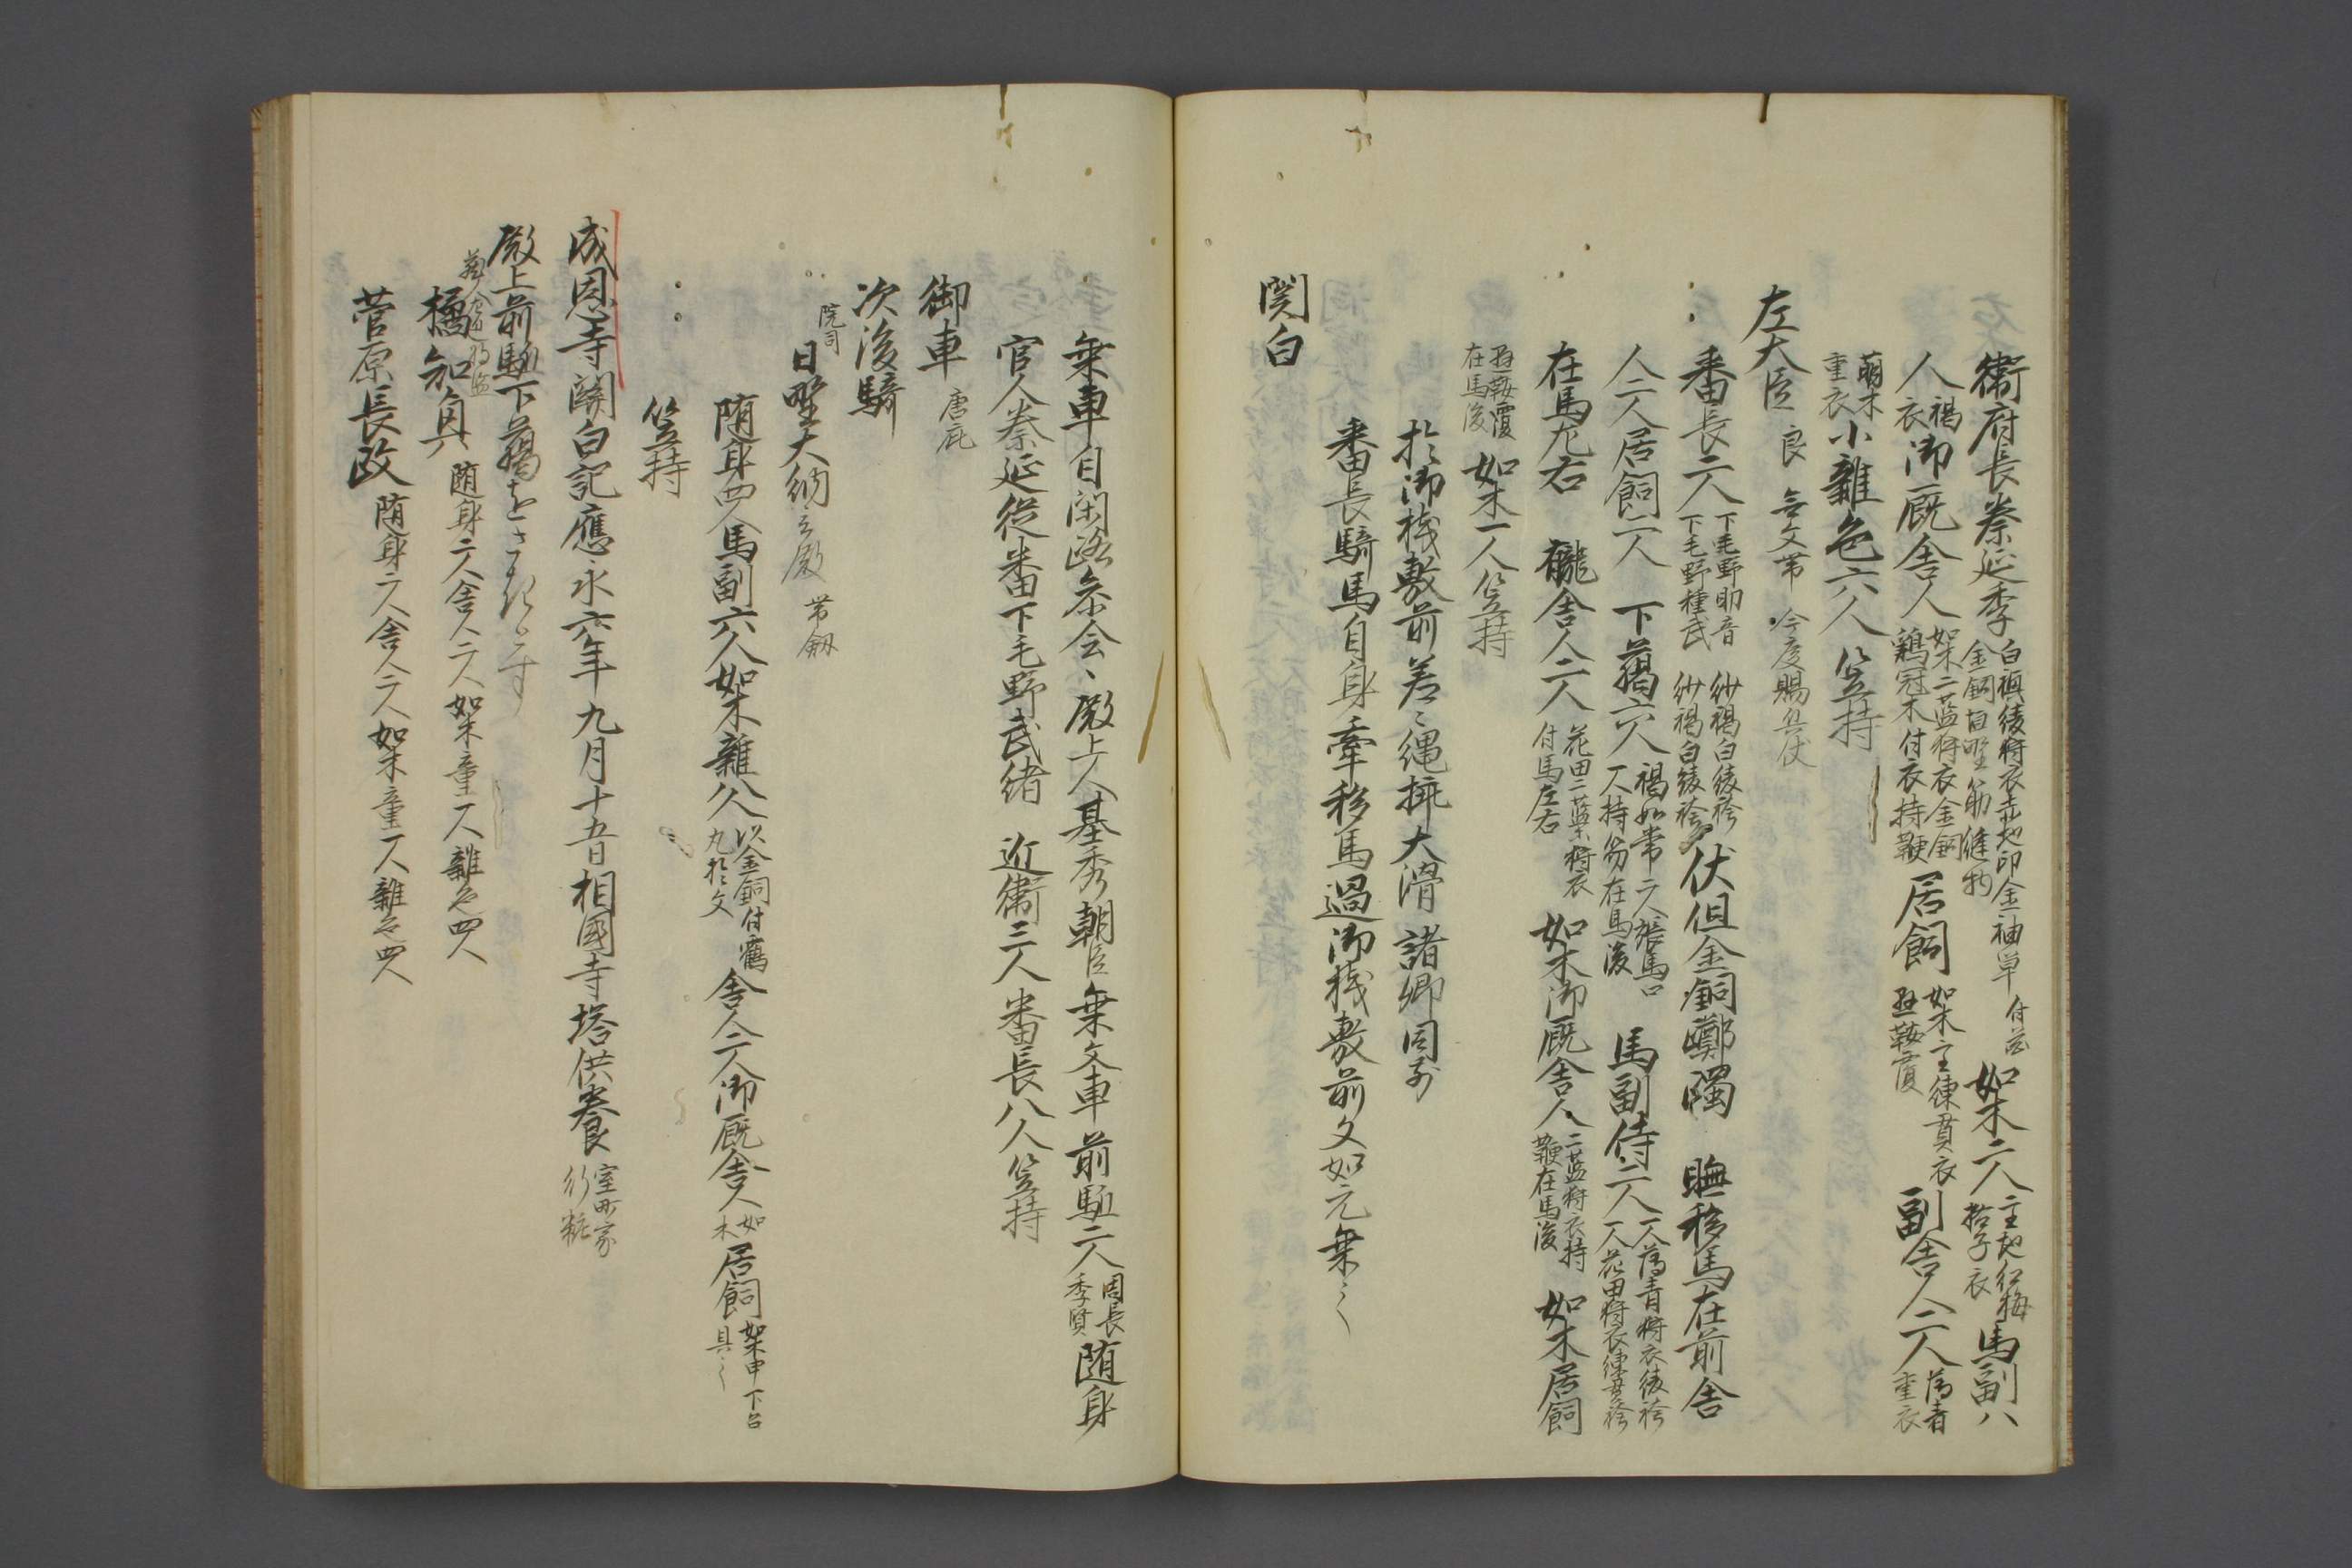 衛府長秦延季 白襖綾狩衣赤地印金袖単 付花 金銅 日野筋縫物 如木二人 主地紅梅 拾子衣 馬副八
人 褐衣 御厩舎人 如木二藍狩衣金銅 鶏冠木付衣持鞭 居飼 如木主練貫衣 鞍覆 副舎人二人 薄青 重衣
萌木 重衣 小雑色六人 笠持
左大臣 良 無文帯 今度賜兵仗
番長二人 下毛野助音 下毛野種武 紗褐白綾袴 紗褐白綾袴 伏組金銅 移馬在前舎
人二人居飼二人 下臈六人 褐如常二人張馬口 一人持 在馬後 馬副侍二人 一人薄青狩衣綾袴 一人花田狩衣練貫袴
在馬左右 舎人二人 花田二藍狩衣 付馬左右 如木御厩舎人 二藍狩衣持 鞭在馬後 如木居飼
鞍覆 在馬後 如木一人笠持
於御桟敷前差々縄 大滑 諸卿同前
番長騎馬自身牽移馬過御桟敷前又如元乗云々
関白
乗車自閑路参会、殿上人基秀朝臣乗文車前駈二人 周長 季賢 随身
官人秦延従番下毛野武緒 近衛三人番長八人笠持
御車 唐庇
次後騎
院司 日野大納言殿 帯劔
随身四人馬副六人如木雑八人 以金銅付鶴 丸於文 舎人二人御厩舎人 如木 居飼 如木申下 具云々
笠持
成恩寺関白記應永六年九月十五日相国寺塔供養 室町家 行粧
殿上前駈下臈
橘知興 随身二人舎人二人如木童一人雑色四人
菅原長政 随身二人舎人二人如木童一人雑色四人